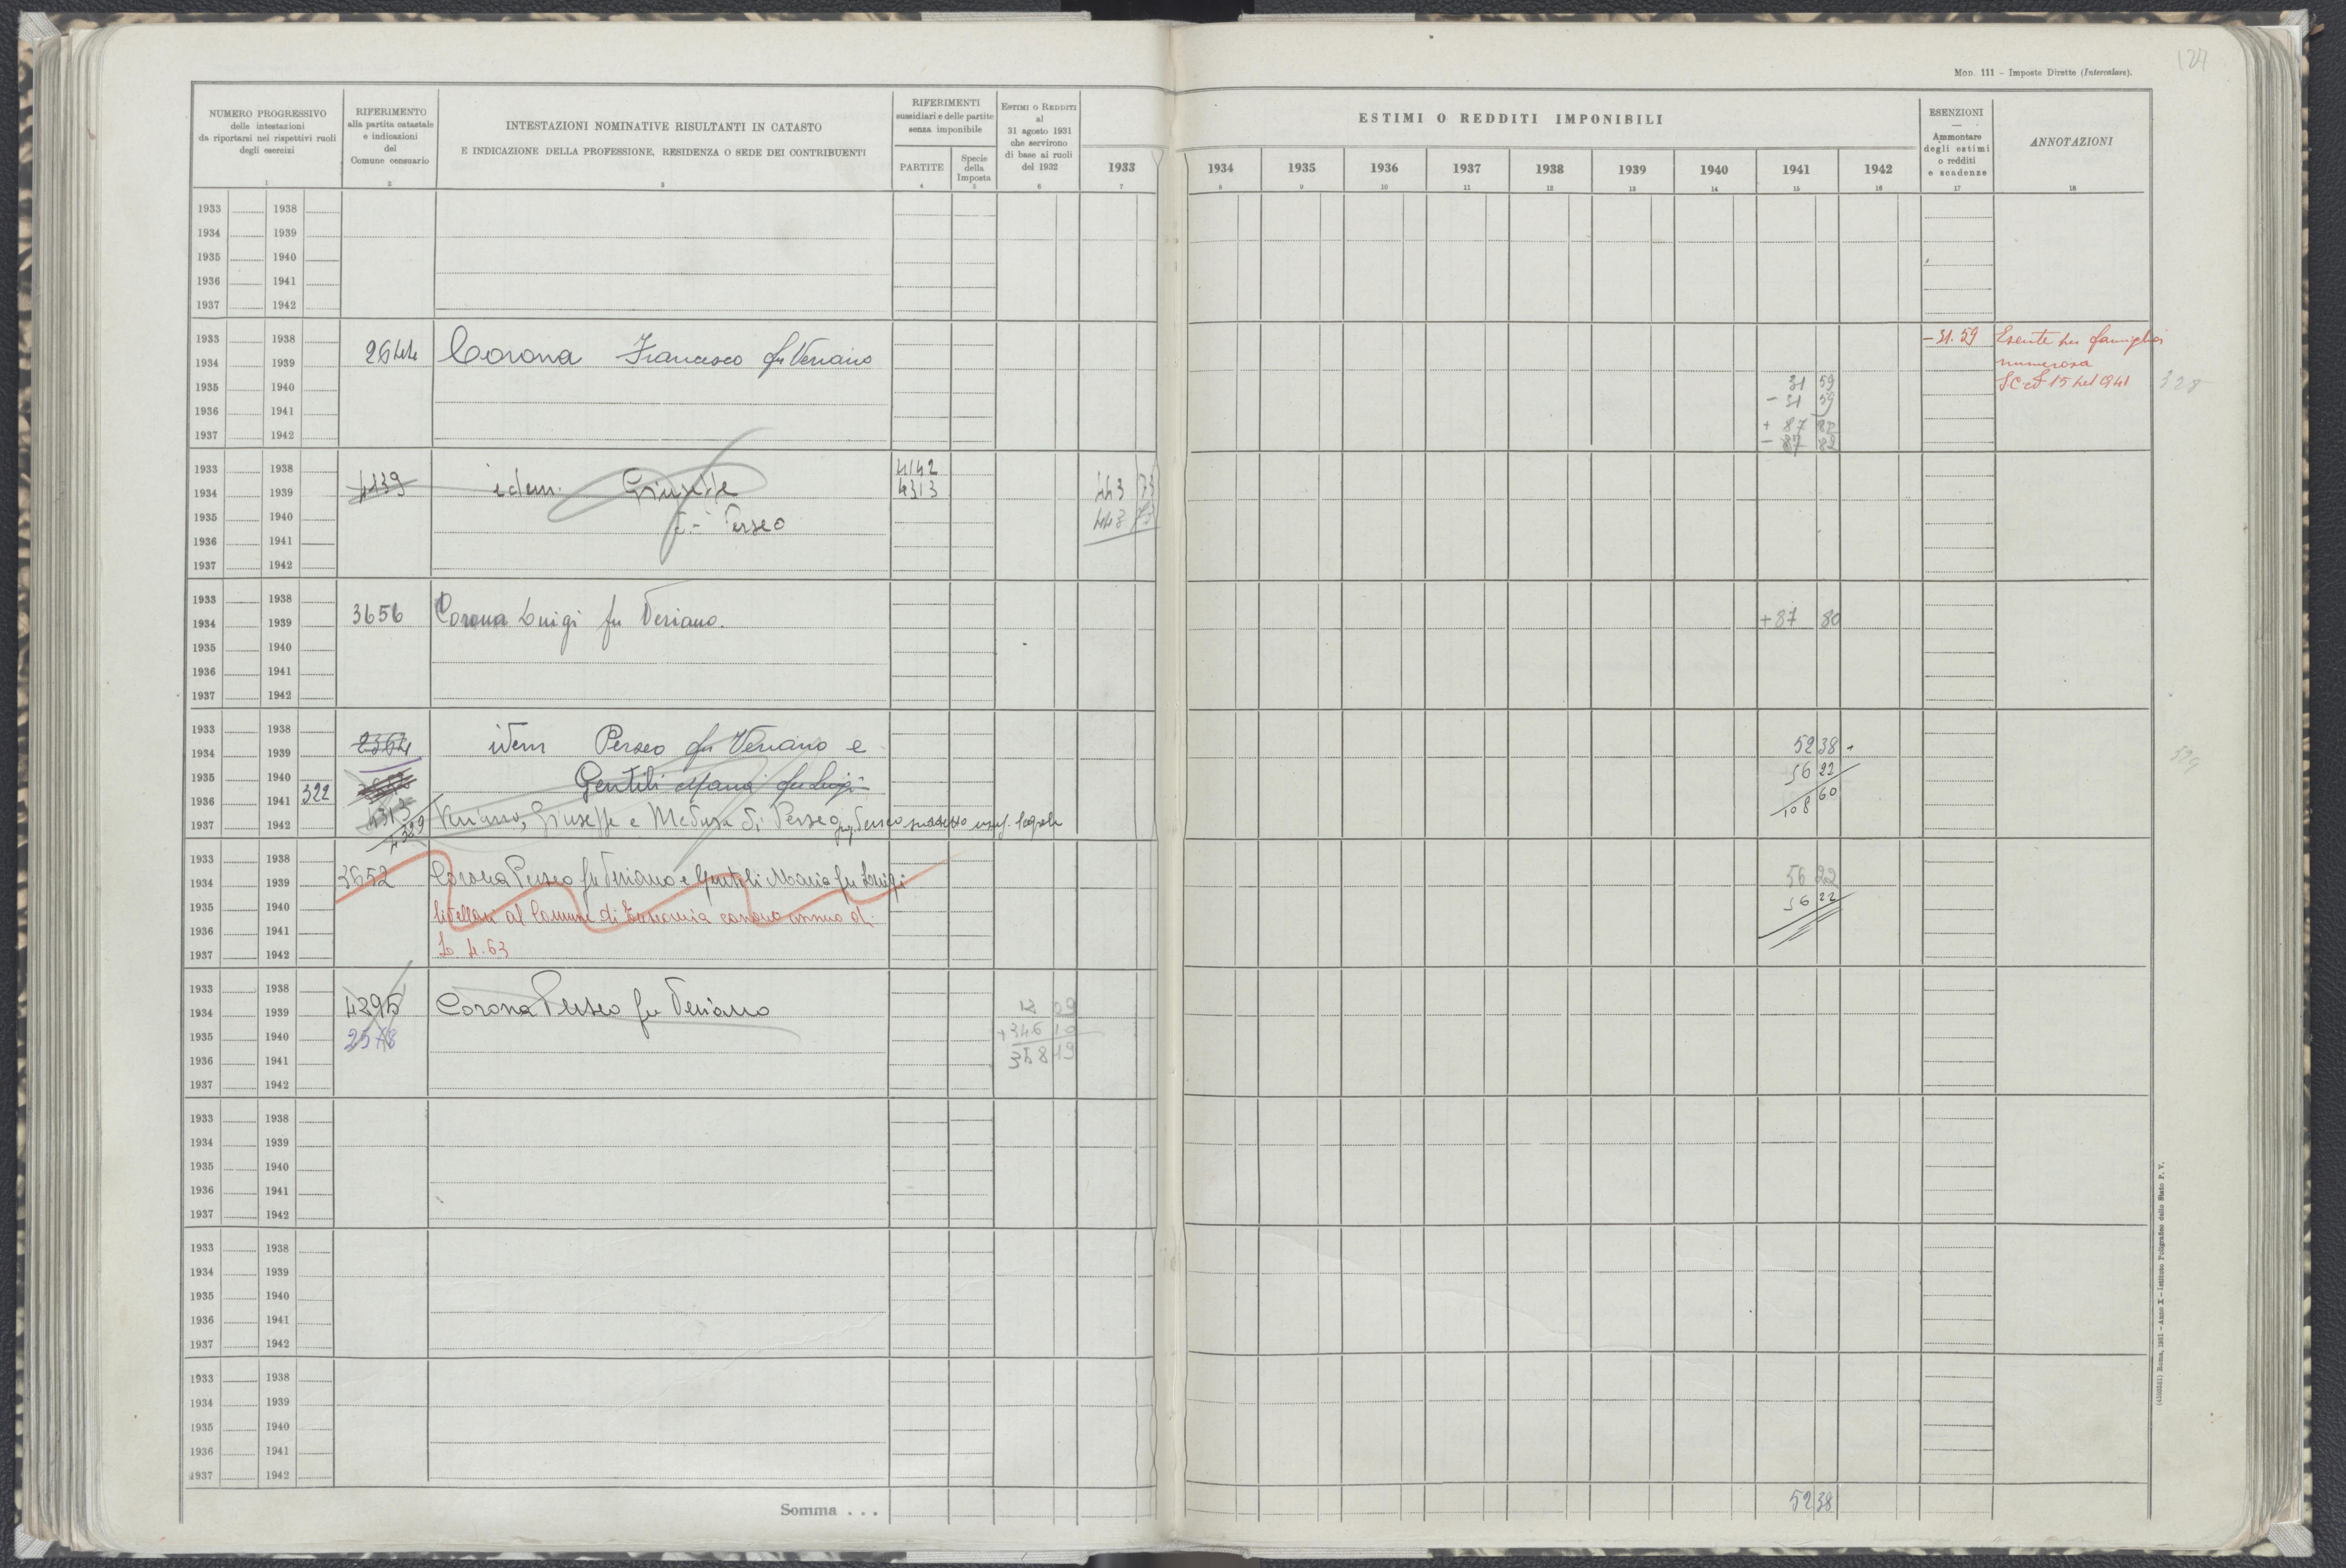 124
Mod. 111 – Imposte Dirette (Intercalare).
NUMERO PROGRESSIVO
delle intestazioni
da riportarsi nei rispettivi ruoli
degli esercizi
1
RIFERIMENTO
alla partita catastale
e indicazioni
del
Comune censuario
2
INTESTAZIONI NOMINATIVE RISULTANTI IN CATASTO
E INDICAZIONE DELLA PROFESSIONE, RESIDENZA O SEDE DEI CONTRIBUENTI
3
RIFERIMENTI
sussidiari e delle partite
senza imponibile
PARTITE
4
Specie
della
Imposta
5
Estimi o Redditi
al
31 agosto 1931
che servirono
di base ai ruoli
del 1932
6
1933
7
ESTIMI O REDDITI IMPONIBILI
1934 1935 1936 1937 1938 1939 1940 1941 1942
8 9 10 11 12 13 14 15 16
ESENZIONI
—
Ammontare
degli estimi
o redditi
e scadenze
17
ANNOTAZIONI
18
1933 1938
1934 1939
1935 1940
1936 1941
1937 1942
1933 1938 -31.59 Esente per famiglia
1934 1939 2644 Corona Francesco fu Veriano numerosa
1935 1940 31 59 15 1941 328
1936 1941 - 31 59
1937 1942 + 87 82
- 87 82
1933 1938 4142
1934 1939 4139 idem Giuseppe 4313 443 73
1935 1940 di Perseo 443 73
1936 1941
1937 1942
1933 1938
1934 1939 3656 Corona Luigi fu Veriano. +87 80
1935 1940
1936 1941
1937 1942
1933 1938 2364 idem Perseo fu Veriano e 52 38
1934 1939 329
1935 1940 Gentili Maria fu Luigi 56 22
1936 1941 322 108 60
1937 1942 4313 Veriano, Giuseppe e Medusa di Perseo Perseo suddetto usuf. legale
4329
1933 1938
1934 1939 3652 Corona Perseo fu Veriano e Gentili Maria fu Luigi 56 22
1935 1940 livellari al Comune di canone annuo di 56 22
1936 1941
1937 1942 L 4.63
1933 1938
1934 1939 4295 Corona Perseo fu Veriano 12 09
1935 1940 2578 +346 10
1936 1941 358 19
1937 1942
1933 1938
1934 1939
1935 1940
1936 1941
1937 1942
1933 1938
1934 1939
1935 1940
1936 1941
1937 1942
1933 1938
1934 1939
1935 1940
1936 1941
1937 1942
Somma . . . 52 38
(4100251) Roma, 1931 – Anno X – Istituto Poligrafico dello Stato P. V.